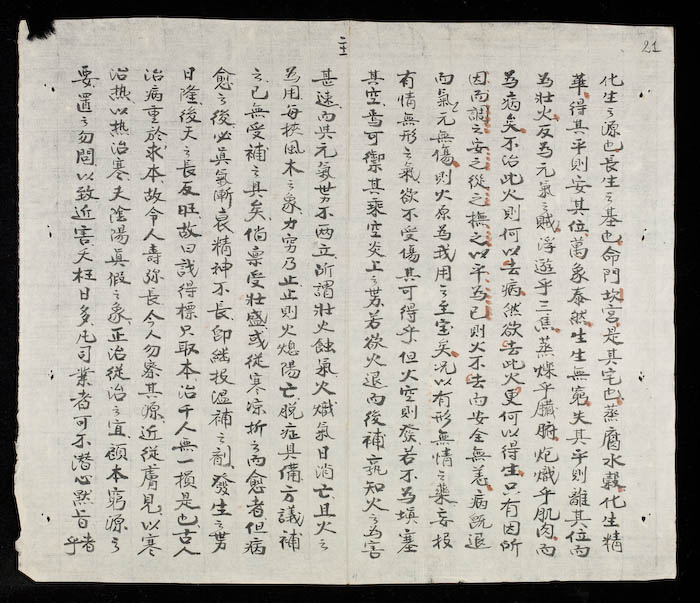 21
化生之源也長生之基也命門坎宮是其宅也蒸腐水穀化生精
華得其平則安其位萬象泰然生生無窮失其平則離其位而
為壯火反為元氣之賊浮遊乎三焦蒸燥乎臟腑炮熾乎肌肉而
為病矣不治此火則何以去病然欲去此火更何以得生只有因所
因而調之安之從之撫之以平為已則火不去而安全無恙病既退
而氣元無傷則火原為我用之主宝矣况以有形無情之藥妄投
有情無形之氣欲不受傷其可得乎但火空則發若不為填塞
其空焉可禦其乘空炎上之势若欲火退而後補孰知火之為害
主
甚速而與元氣势不两立所謂壯火蝕氣火熾氣日消亡且火之
為用每挾風木之象力窮乃止止則火熄陽亡脱症具備方議補
之已無受補之具矣倘禀受壯盛或從寒凉折之而愈者但病
愈之後必真氣漸衰精神不長即繼投溫補之剤發生之势
日隆後天之長反旺故曰識得標只取本治千人無一損是也古人
治病重於求本故令人壽弥長今人勿察其源近從膚見以寒
治热以热治寒夫陰陽真假之象正治從治之宜顧本窮源之
要置之勿問以致近害夭枉日多凡司業者可不潜心默旨者乎